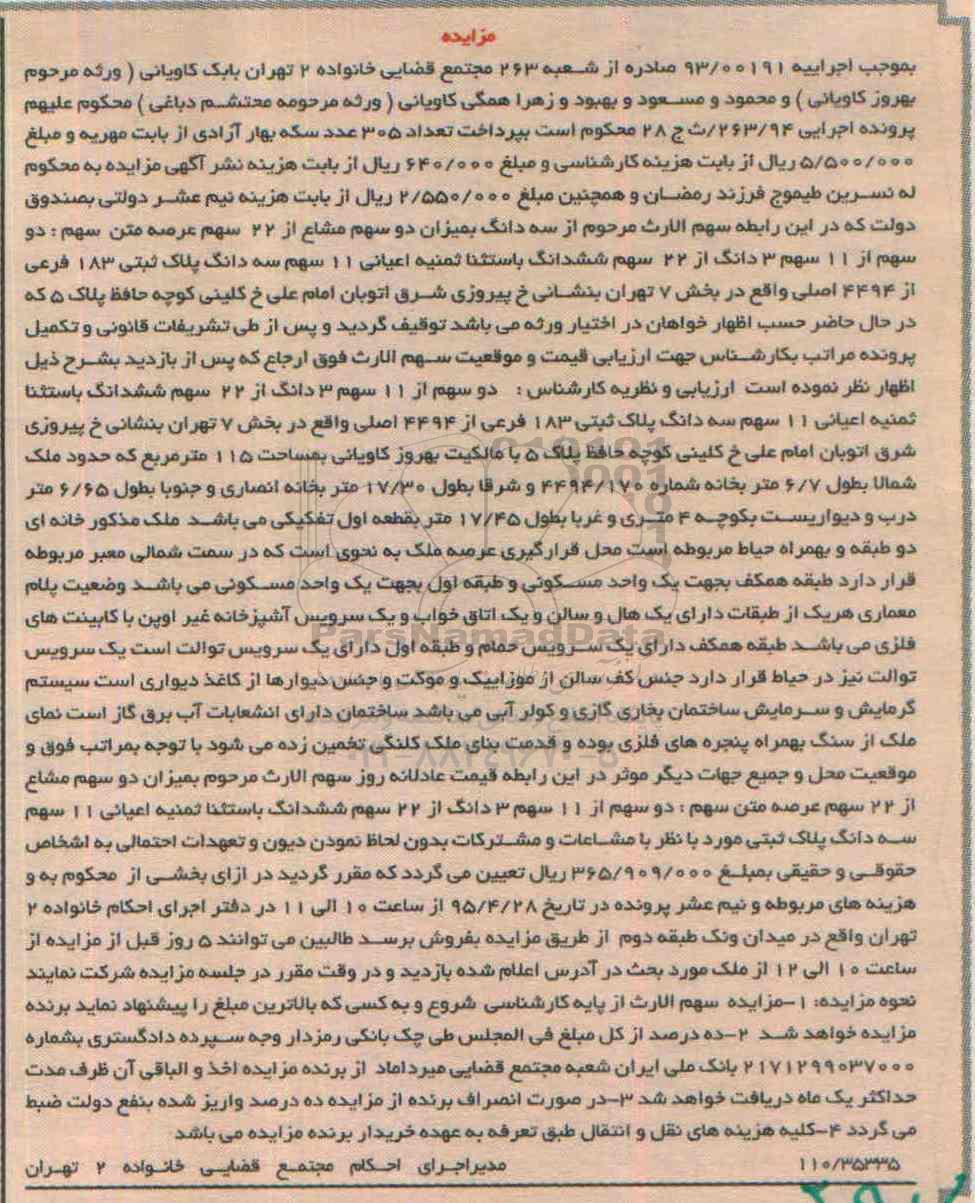 مزایده
بموجب اجراییه ۹۳/۰۰۱۹۱ صادره از شعبه ۲۶۳ مجتمع قضایی خانواده ۲ تهران بابک کاویانی ( ورثه مرحوم
بهروز کاویانی ) و محمود و مسعود و بهبود و زهرا همگی کاویانی ( ورثه مرحومه محتشم دباغی ) محکوم علیهم
پرونده اجرایی ۲۶۳/۹۴/ث ج ۲۸ محکوم است بپرداخت تعداد ۳۰۵ عدد سکه بهار آزادی از بابت مهریه و مبلغ
۵/۵۰۰/۰۰۰ ریال از بابت هزینه کارشناسی و مبلغ ۶۴۰/۰۰۰ ریال از بابت هزینه نشر آگهی مزایده به محکوم
له نسرین طیموج فرزند رمضان و همچنین مبلغ ۲/۵۵۰/۰۰۰ ریال از بابت هزینه نیم عشر دولتی بصندوق
دولت که در این رابطه سهم الارث مرحوم از سه دانگ بمیزان دو سهم مشاع از ۲۲ سهم عرصه متن سهم : دو
سهم از ۱۱ سهم ۳ دانگ از ۲۲ سهم ششدانگ باستثنا ثمنیه اعیانی ۱۱ سهم سه دانگ پلاک ثبتی ۱۸۳ فرعی
از ۴۴۹۴ اصلی واقع در بخش ۷ تهران بنشانی خ پیروزی شرق اتوبان امام علی خ کلینی کوچه حافظ پلاک ۵ که
در حال حاضر حسب اظهار خواهان در اختیار ورثه می باشد توقیف گردید و پس از طی تشریفات قانونی و تکمیل
پرونده مراتب بکارشناس جهت ارزیابی قیمت و موقعیت سهم الارث فوق ارجاع که پس از بازدید بشرح ذیل
اظهار نظر نموده است ارزیابی و نظریه کارشناس : دو سهم از ۱۱ سهم ۳ دانگ از ۲۲ سهم ششدانگ باستثنا
ثمنیه اعیانی ۱۱ سهم سه دانگ پلاک ثبتی ۱۸۳ فرعی از ۴۴۹۴ اصلی واقع در بخش ۷ تهران بنشانی خ پیروزی
شرق اتوبان امام علی خ کلینی کوچه حافظ پلاک ۵ با مالکیت بهروز کاویانی بمساحت ۱۱۵ مترمربع که حدود ملک
شمالا بطول ۶/۷ متر بخانه شماره ۴۴۹۴/۱۷۰ و شرقا بطول ۱۷/۳۰ متر بخانه انصاری و جنوبا بطول ۶/۶۵ متر
درب و دیواریست بکوچه ۴ متری و غربا بطول ۱۷/۴۵ متر بقطعه اول تفکیکی می باشد ملک مذکور خانه ای
دو طبقه و بهمراه حیاط مربوطه است محل قرارگیری عرصه ملک به نحوی است که در سمت شمالی معبر مربوطه
قرار دارد طبقه همکف بجهت یک واحد مسکونی و طبقه اول بجهت یک واحد مسکونی می باشد وضعیت پلام
معماری هریک از طبقات دارای یک هال و سالن و یک اتاق خواب و یک سرویس آشپزخانه غیر اوپن با کابینت های
فلزی می باشد طبقه همکف دارای یک سرویس حمام و طبقه اول دارای یک سرویس توالت است یک سرویس
توالت نیز در حیاط قرار دارد جنس کف سالن از موزاییک و موکت و جنس دیوارها از کاغذ دیواری است سیستم
گرمایش و سرمایش ساختمان بخاری گازی و کولر آبی می باشد ساختمان دارای انشعابات آب برق گاز است نمای
ملک از سنگ بهمراه پنجره های فلزی بوده و قدمت بنای ملک کلنگی تخمین زده می شود با توجه بمراتب فوق و
موقعیت محل و جمیع جهات دیگر موثر در این رابطه قیمت عادلانه روز سهم الارث مرحوم بمیزان دو سهم مشاع
از ۲۲ سهم عرصه متن سهم : دو سهم از ۱۱ سهم ۳ دانگ از ۲۲ سهم ششدانگ باستثنا ثمنیه اعیانی ۱۱ سهم
سه دانگ پلاک ثبتی مورد با نظر با مشاعات و مشترکات بدون لحاظ نمودن دیون و تعهدات احتمالی به اشخاص
حقوقی و حقیقی بمبلغ ۳۶۵/۹۰۹/۰۰۰ ریال تعیین می گردد که مقرر گردید در ازای بخشی از محکوم به و
هزینه های مربوطه و نیم عشر پرونده در تاریخ ۹۵/۴/۲۸ از ساعت ۱۰ الی ۱۱ در دفتر اجرای احکام خانواده ۲
تهران واقع در میدان ونک طبقه دوم از طریق مزایده بفروش برسد طالبین می توانند ۵ روز قبل از مزایده از
ساعت ۱۰ الی ۱۲ از ملک مورد بحث در آدرس اعلام شده بازدید و در وقت مقرر در جلسه مزایده شرکت نمایند
نحوه مزایده: ۱-مزایده سهم الارث از پایه کارشناسی شروع و به کسی که بالاترین مبلغ را پیشنهاد نماید برنده
مزایده خواهد شد ۲-ده درصد از کل مبلغ فی المجلس طی چک بانکی رمزدار وجه سپرده دادگستری بشماره
۲۱۷۱۲۹۹۰۳۷۰۰۰ بانک ملی ایران شعبه مجتمع قضایی میرداماد از برنده مزایده اخذ و الباقی آن ظرف مدت
حداکثر یک ماه دریافت خواهد شد ۳-در صورت انصراف برنده از مزایده ده درصد واریز شده بنفع دولت ضبط
می گردد ۴-کلیه هزینه های نقل و انتقال طبق تعرفه به عهده خریدار برنده مزایده می باشد
۱۱۰/۳۵۳۳۵ مدیراجرای احکام مجتمع قضایی خانواده ۲ تهران
ParsNamadData